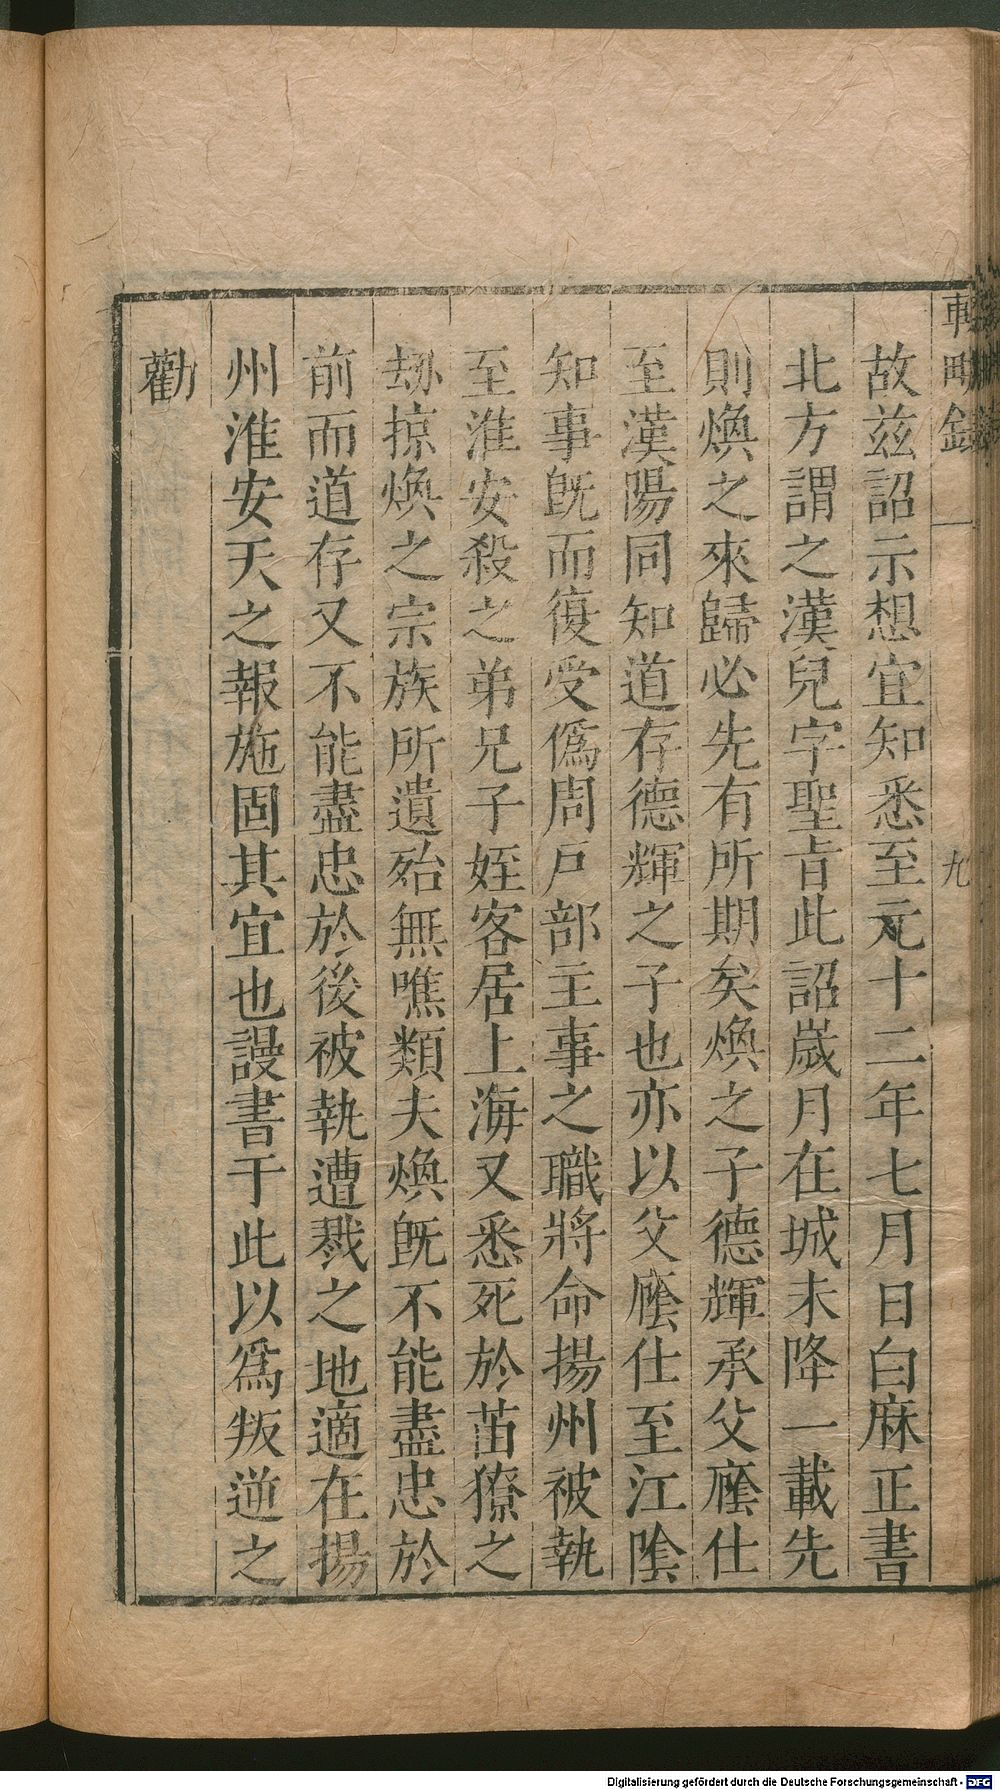 車畊錄 一 九
故兹詔示想宜知悉至元十二年七月日白麻正書
北方謂之漢兒字聖旨此詔嵗月在城未降一載先
則煥之來歸必先有所期矣煥之子德輝承父廕仕
至漢陽同知道存德輝之子也亦以父廕仕至江陰
知事旣而復受僞周戸部主事之職將命揚州被執
至淮安殺之弟兄子姪客居上海又悉死於苗獠之
刼掠煥之宗族所遺殆無噍類夫煥旣不能盡忠於
前而道存又不能盡忠於後被執遭戮之地適在揚
州淮安天之報施固其宜也謾書于此以爲叛逆之
勸
Digitalisierung gefördert durch die Deutsche Forschungsgemeinschaft - DFG